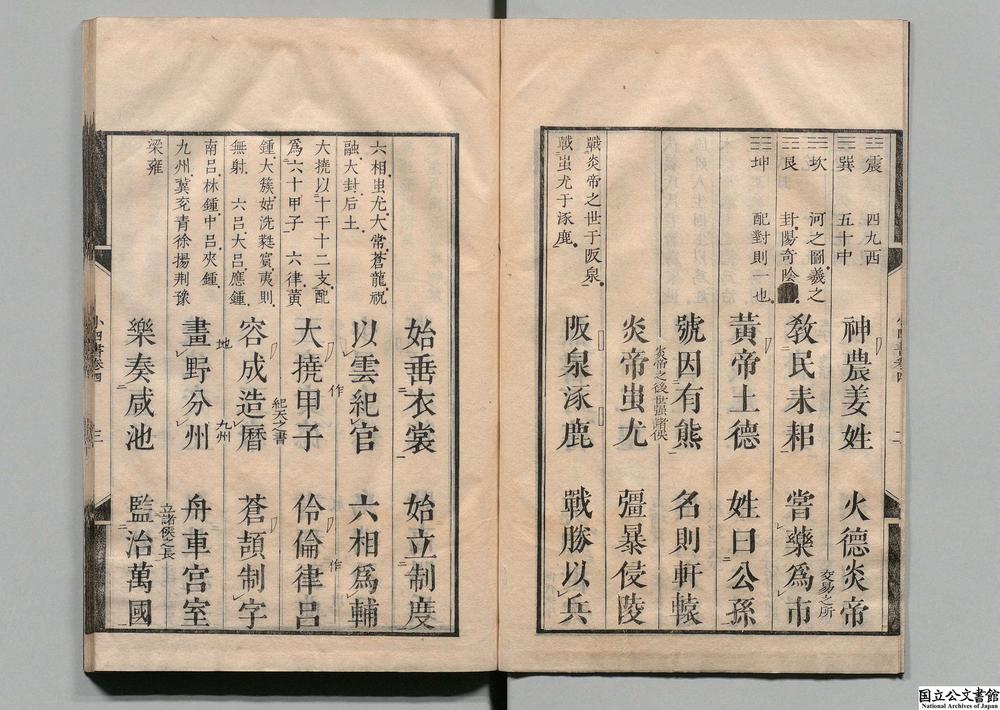 震 四九西
巽 五十中
坎 河之圖羲之
艮 卦陽奇陰
坤 配對則一也
神農姜姓 火德炎帝
教民耒耜 嘗藥爲市
交易之所
黃帝土德 姓曰公孫
號因有熊 名則軒轅
炎帝之後世强諸侯
炎帝蚩尤 彊暴侵陵
戰炎帝之世于阪泉
戰蚩尤于涿鹿
阪泉涿鹿 戰勝以兵
小四書卷四
二
始垂衣裳 始立制度
六相蚩尤大常蒼龍祝
融大封后土
以雲紀官 六相爲輔
作
作
大撓以十干十二支配
爲六十甲子 六律黃
大撓甲子 伶倫律呂
紀天之書
鍾大簇姑洗蕤賓夷則
無射 六呂大呂應鍾
容成造曆 蒼頡制字
地
九州
南呂林鍾中呂夾鍾
九州冀兗青徐揚荆豫
畫野分州 舟車宮室
立諸侯之長
梁雍
樂奏咸池 監治萬國
小四書卷四
三
国立公文書館
National Archives of Japan